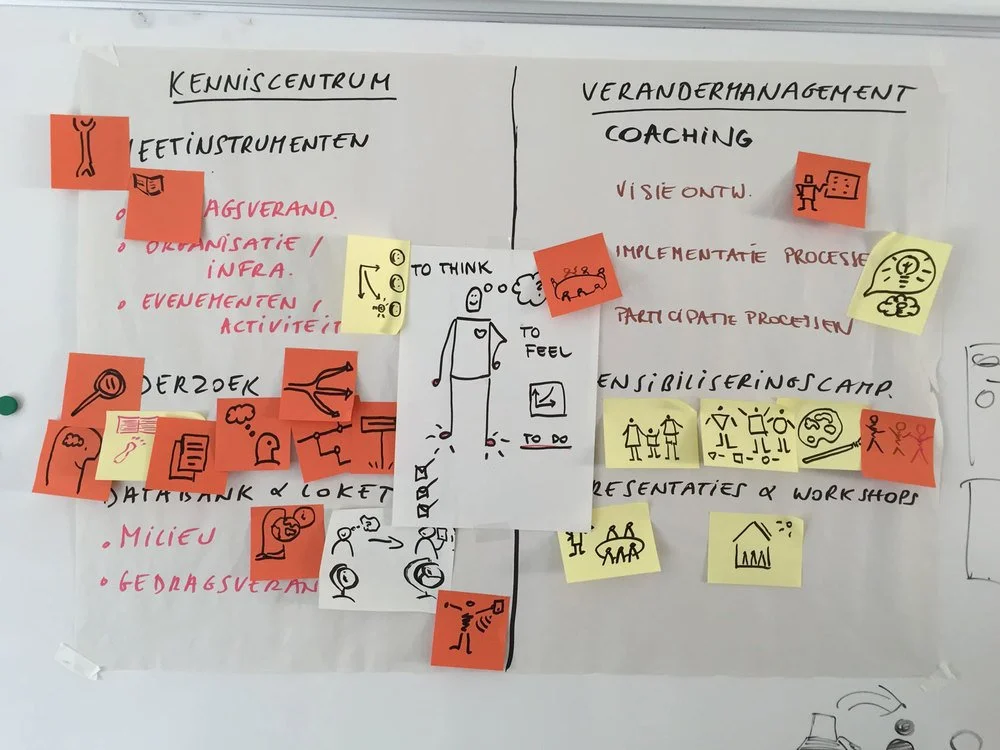 KENNISCENTRUM
EETINSTRUMENTEN
AGSVERAND.
• ORGANISATIE /
INFRA.
• EVENEMENTEN /
ACTIVITEIT
DERZOEK
DATABANK & LOKET
• MILIEU
• GEDRAGSVERAN
TO THINK
TO
FEEL
TO DO
VERANDERMANAGEMENT
COACHING
VISIE ONTW.
IMPLEMENTATIE PROCESSE
PARTICIPATIE PROCESSEN
ENSIBILISERINGSCAMP.
RESENTATIES & WORKSHOPS